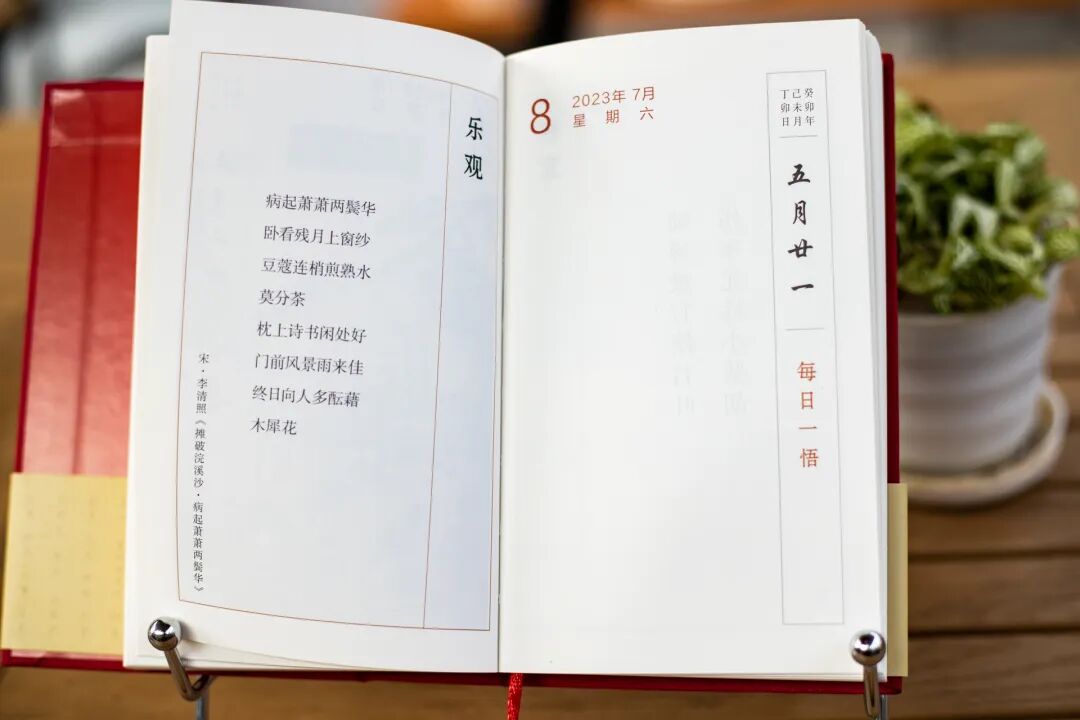 乐观
病起萧萧两鬓华
卧看残月上窗纱
豆蔻连梢煎熟水
莫分茶
枕上诗书闲处好
门前风景雨来佳
终日向人多酝藉
木犀花
宋·李清照《摊破浣溪沙·病起萧萧两鬓华》
8
2023年 7月
星期六
癸卯年
己未月
丁卯日
五月廿一
每日一悟